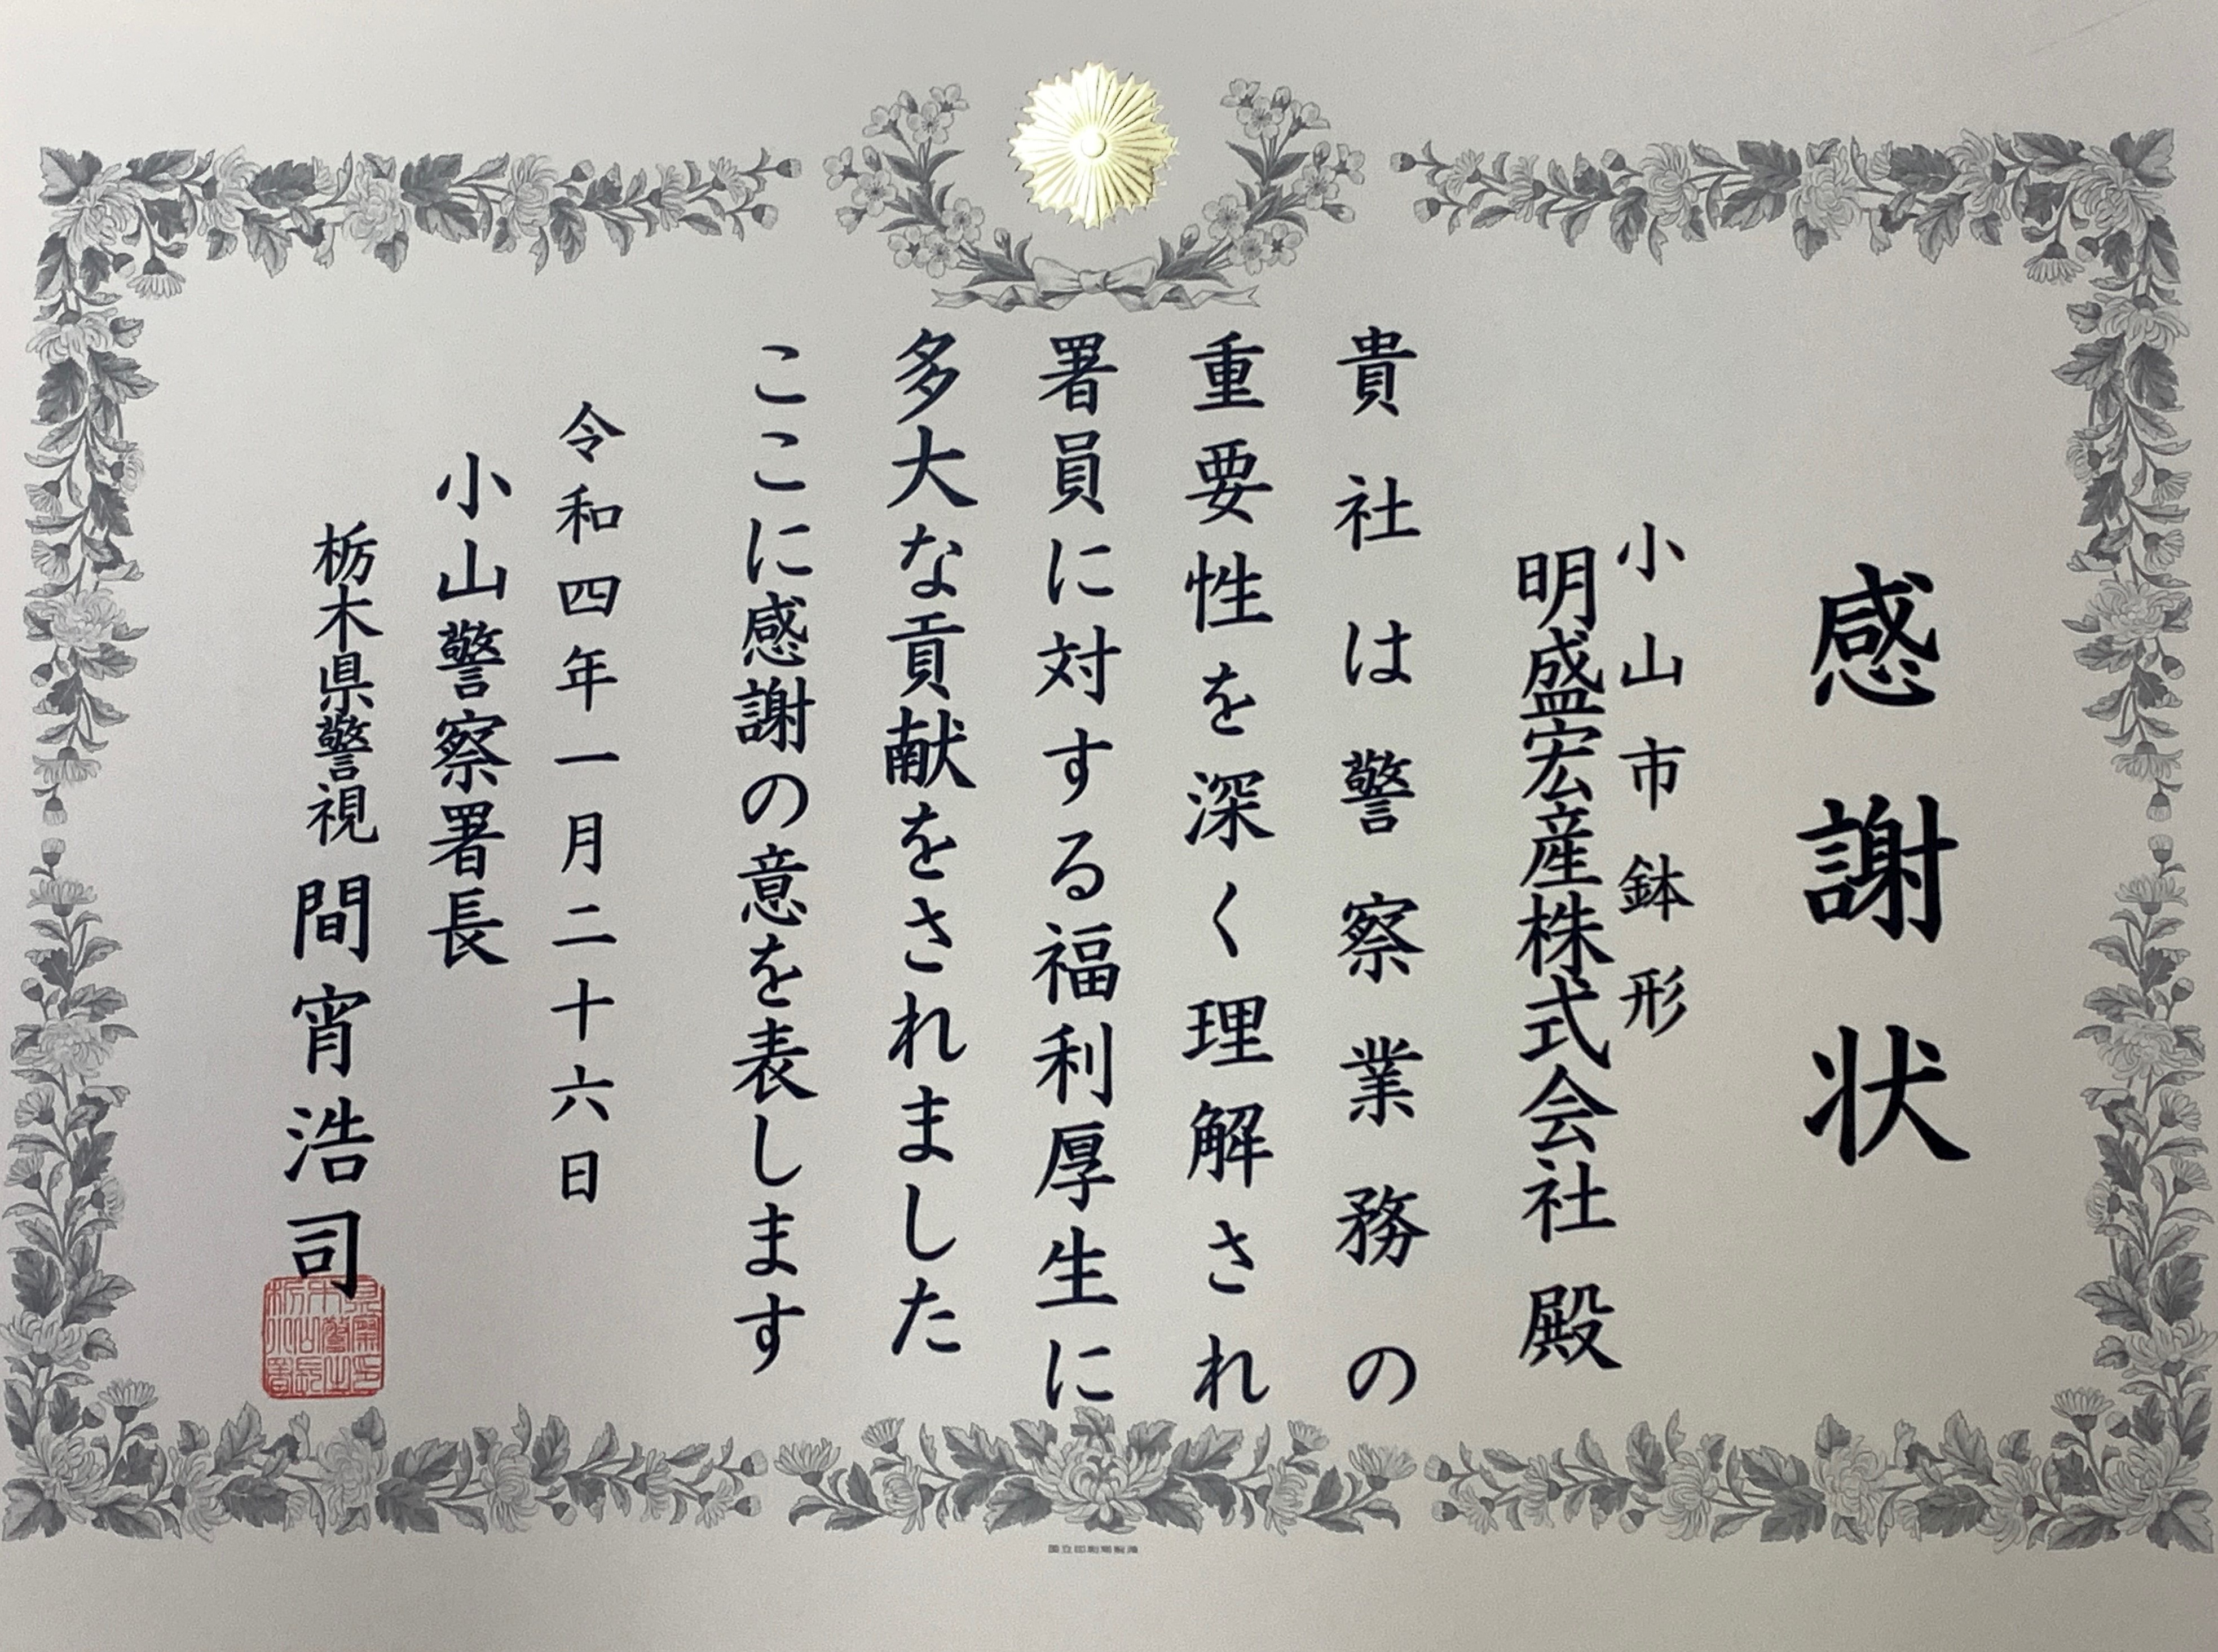 感謝状
小山市鉢形
明盛宏産株式会社 殿
貴社は警察業務の
重要性を深く理解され
署員に対する福利厚生に
多大な貢献をされました
ここに感謝の意を表します
令和四年一月二十六日
小山警察署長
栃木県警視 間宵浩司
国立印刷局製造